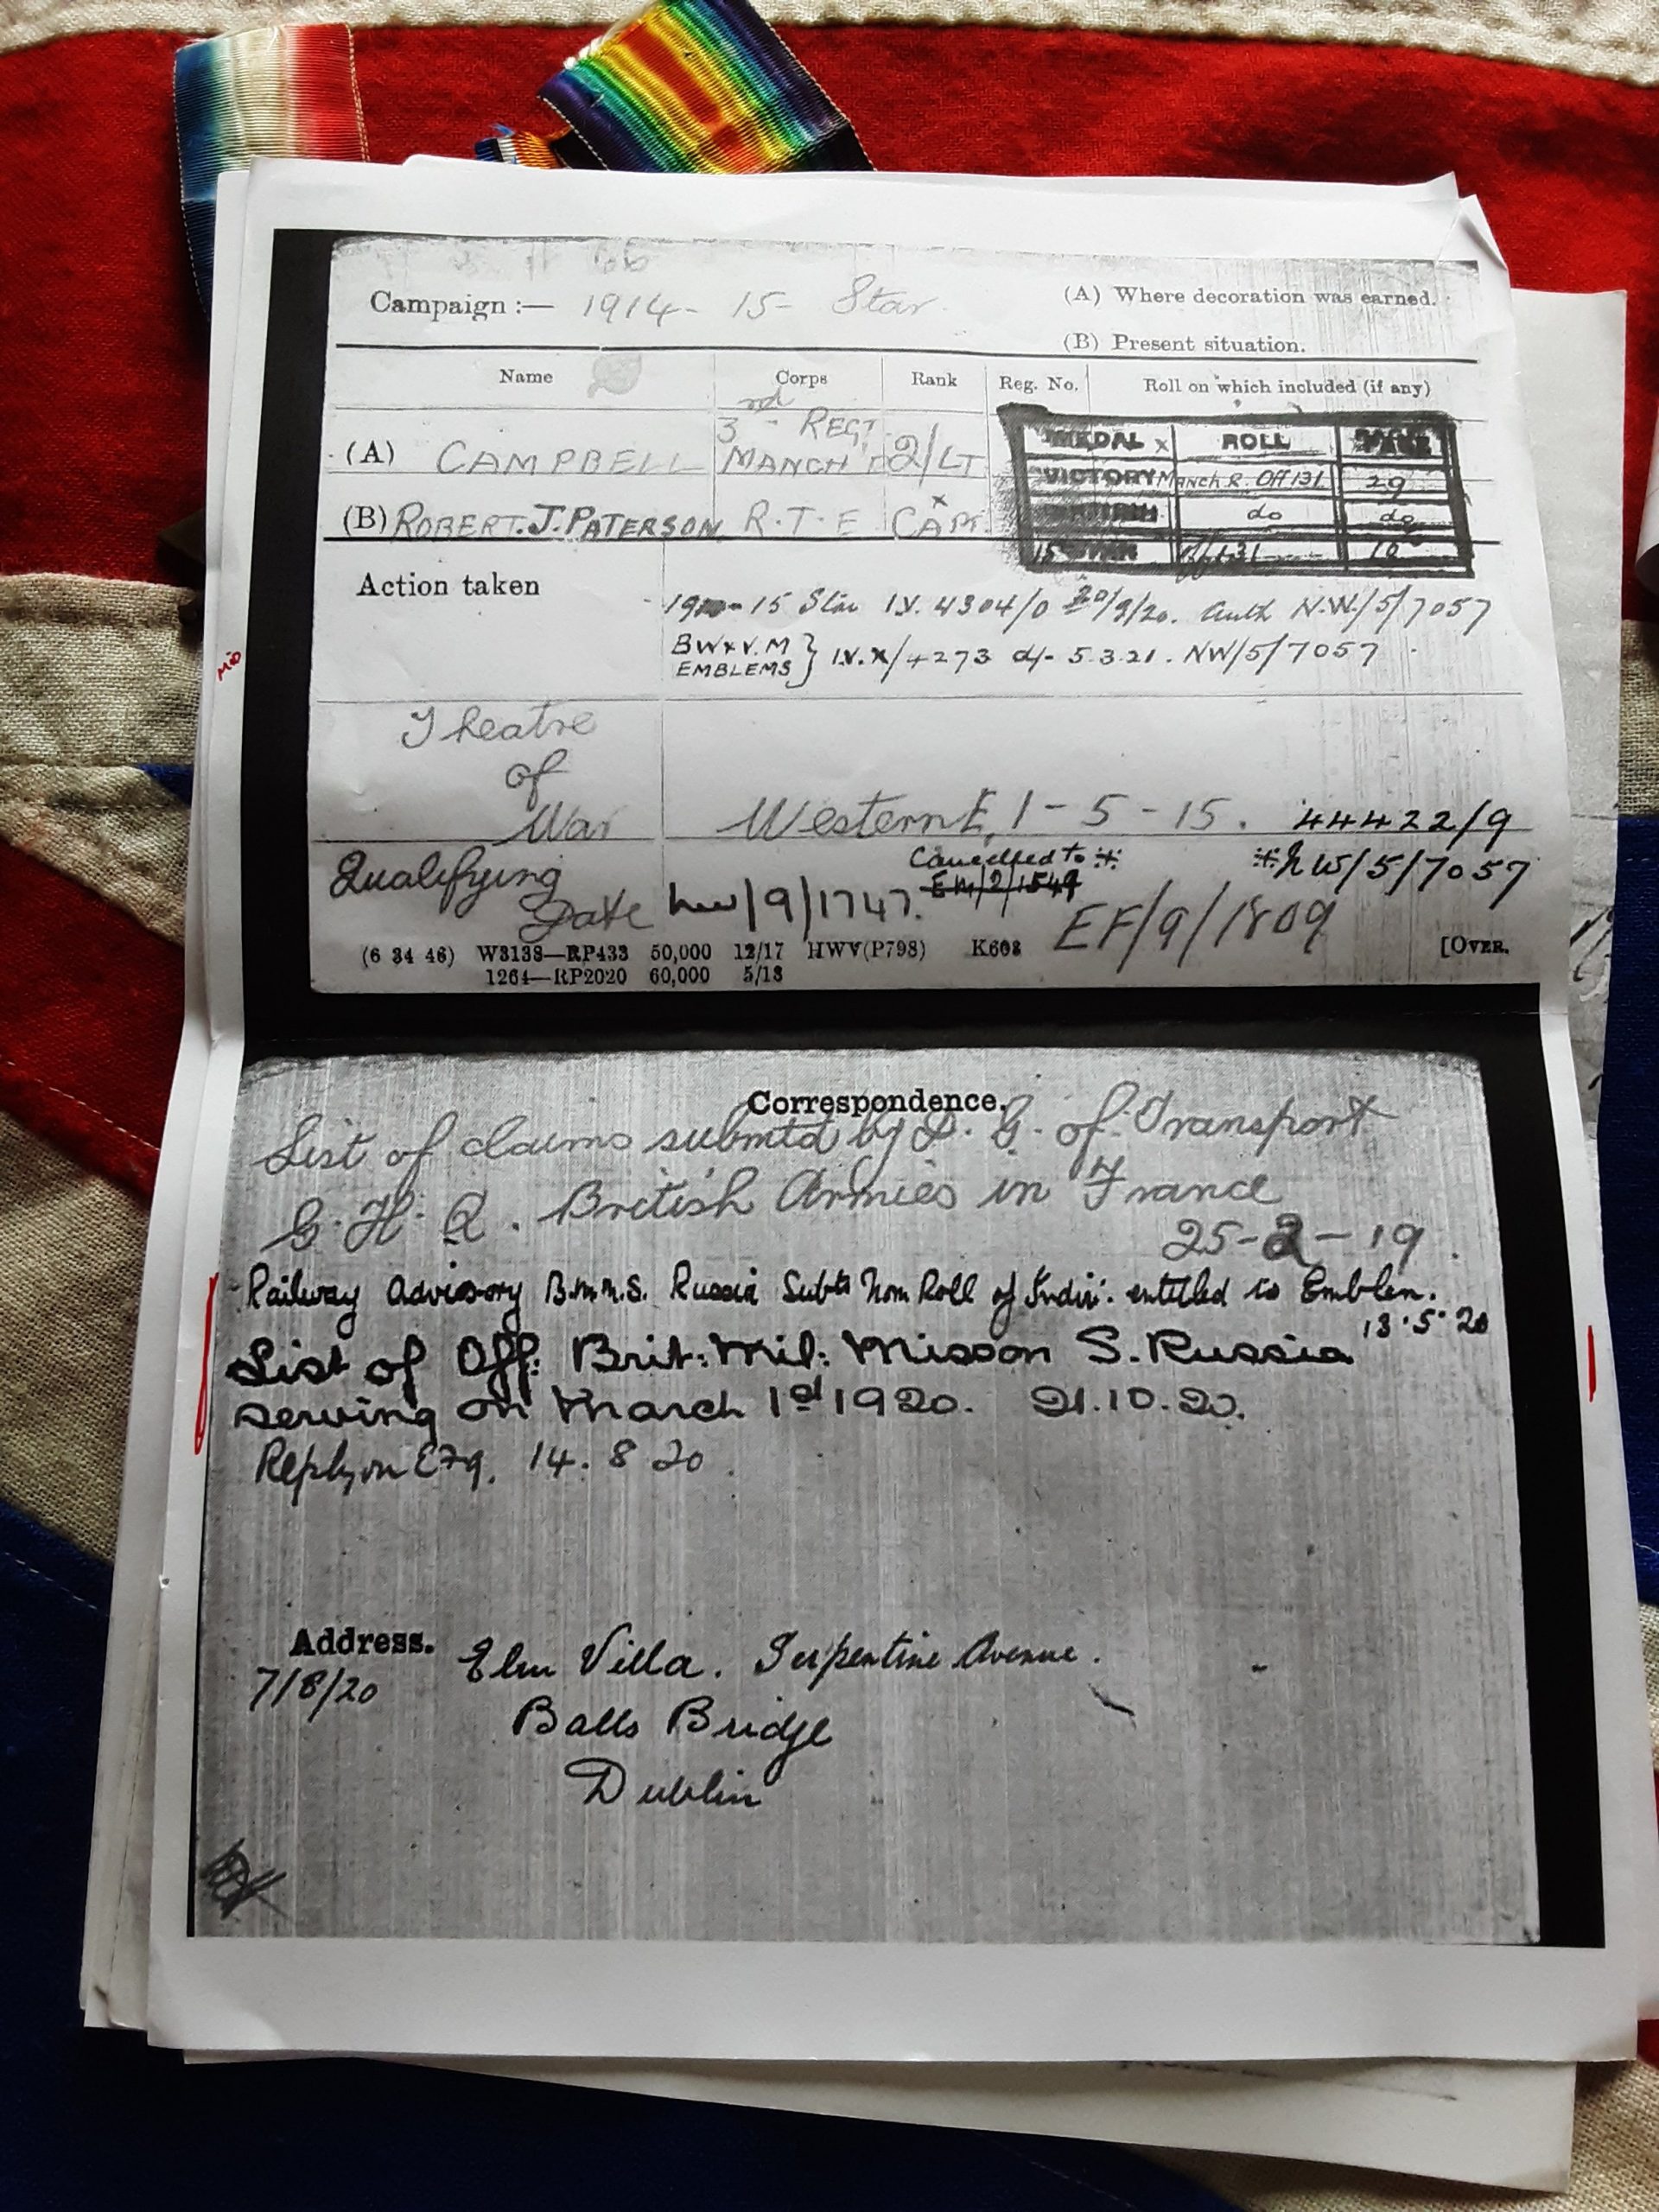 Campaign :— 1914 - 15 - Star
(A) Where decoration was earned.
(B) Present situation.
Name Corps Rank Reg. No. Roll on which included (if any)
(A) CAMPBELL 3rd REGT MANCH'R 2/LT
(B) ROBERT. J. PATERSON R.T.E CAPT x
MEDAL x ROLL PAGE
VICTORY Manch R. Off 131 29
BRITISH do do
15 STAR 10
Action taken
15 Star I.V. 4304/0 20/3/20. Auth N.W/5/7057
BW & V.M
EMBLEMS } I.V.X/4273 d/- 5.3.21. NW/5/7057
MID
Theatre
of
War Western E, 1-5-15. 44422/9
Cancelled to ※ ※NW/5/7057
Qualifying EM/2/1549
Date NW/9/1747. EF/9/1809
(6 34 46) W3138—RP433 50,000 12/17 HWV(P798) K608 [OVER.
1264—RP2020 60,000 5/18
Correspondence.
List of claims submtd by D. G. of Transport
G. H. Q. British Armies in France
25-2-19.
Railway Advisory Russia Subts Nom Roll of Indiv: entitled to Emblem.
13.5.20
List of Off: Brit: Mil: Misson S. Russia
serving on March 1st 1920. 21.10.20.
Reply on EF9. 14. 8 20.
Address. Elm Villa. Serpentine Avenue.
7/8/20
Balls Bridge
Dublin